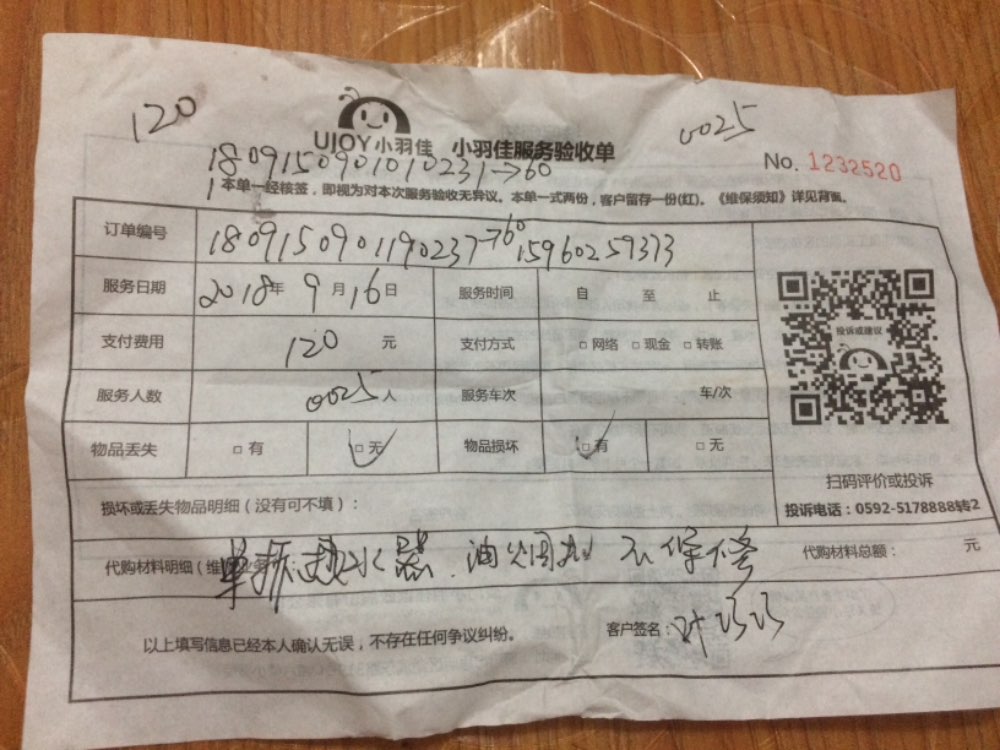 120
0025
UJOY小羽佳 小羽佳服务验收单
No. 1232520
180915090101010231→60
本单一经核签，即视为对本次服务验收无异议。本单一式两份，客户留存一份(红)。《维保须知》详见背面。
订单编号 180915090119023 7→60 15960259373
服务日期 2018年 9月16日 服务时间 自 至 止
支付费用 120 元 支付方式 □网络 □现金 □转账
投诉或建议
服务人数 0025人 服务车次 车/次
物品丢失 □有 □无 物品损坏 □有 □无
扫码评价或投诉
投诉电话：0592-5178888转2
损坏或丢失物品明细（没有可不填）：
代购材料明细（维 单拆热水器.油烟机 不保修 代购材料总额： 元
以上填写信息已经本人确认无误，不存在任何争议纠纷。 客户签名：叶巧巧